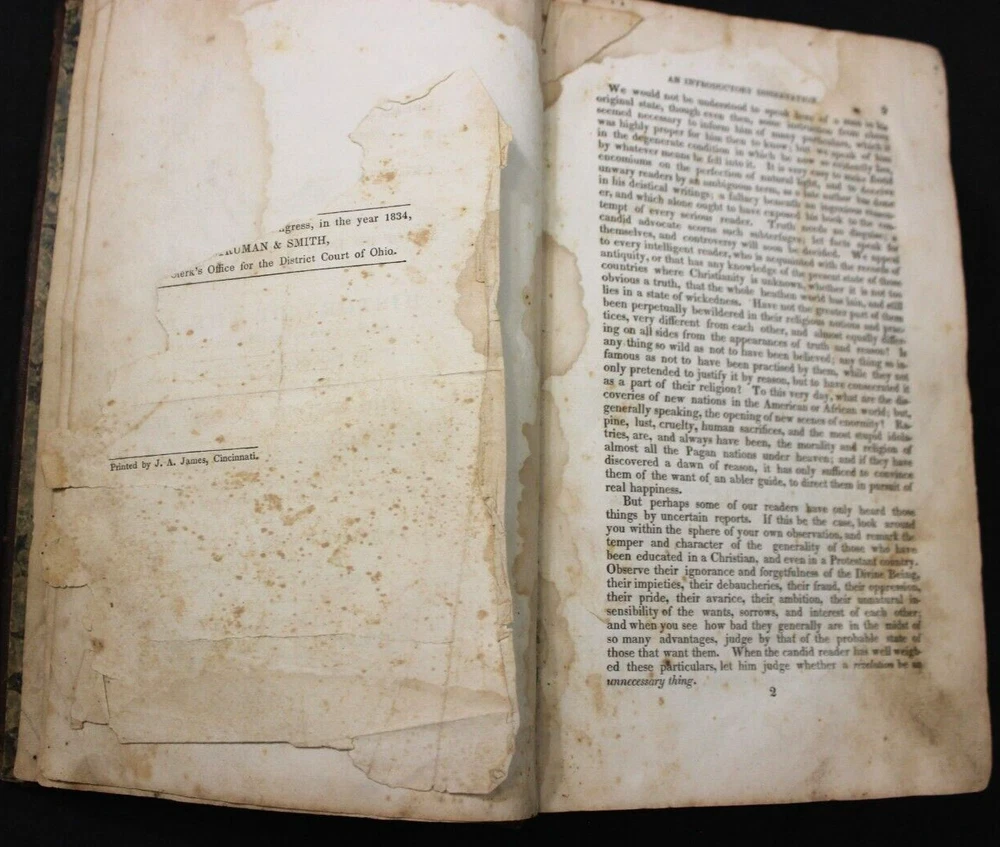 ngress, in the year 1834,
RUMAN & SMITH,
Clerk's Office for the District Court of Ohio.
Printed by J. A. James, Cincinnati.
AN INTRODUCTORY DISSERTATION. 9
We would not be understood to speak here of a man in his
original state, though even then, some instruction from above
seemed necessary to inform him of many particulars, which it
was highly proper for him then to know; but we speak of him
in the degenerate condition in which he now so evidently lies,
by whatever means he fell into it. It is very easy to make florid
encomiums on the perfection of natural light, and to deceive
unwary readers by an ambiguous term, as a late author has done
in his deistical writings; a fallacy beneath an ingenious reason-
er, and which alone ought to have exposed his book to the con-
tempt of every serious reader. Truth needs no disguise; a
candid advocate scorns such subterfuge; let facts speak for
themselves, and controversy will soon be decided. We appeal
to every intelligent reader, who is acquainted with the records of
antiquity, or that has any knowledge of the present state of those
countries where Christianity is unknown, whether it is not too
obvious a truth, that the whole heathen world has lain, and still
lies in a state of wickedness. Have not the greater part of them
been perpetually bewildered in their religious notions and prac-
tices, very different from each other, and almost equally differ-
ing on all sides from the appearances of truth and reason? Is
any thing so wild as not to have been believed; any thing so in-
famous as not to have been practised by them, while they not
only pretended to justify it by reason, but to have consecrated it
as a part of their religion? To this very day, what are the dis-
coveries of new nations in the American or African world; but,
generally speaking, the opening of new scenes of enormity? Ra-
pine, lust, cruelty, human sacrifices, and the most stupid idola-
tries, are, and always have been, the morality and religion of
almost all the Pagan nations under heaven; and if they have
discovered a dawn of reason, it has only sufficed to convince
them of the want of an abler guide, to direct them in pursuit of
real happiness.
But perhaps some of our readers have only heard those
things by uncertain reports. If this be the case, look around
you within the sphere of your own observation, and remark the
temper and character of the generality of those who have
been educated in a Christian, and even in a Protestant country.
Observe their ignorance and forgetfulness of the Divine Being,
their impieties, their debaucheries, their fraud, their oppression,
their pride, their avarice, their ambition, their unnatural in-
sensibility of the wants, sorrows, and interest of each other;
and when you see how bad they generally are in the midst of
so many advantages, judge by that of the probable state of
those that want them. When the candid reader has well weigh-
ed these particulars, let him judge whether a revelation be an
unnecessary thing.
2